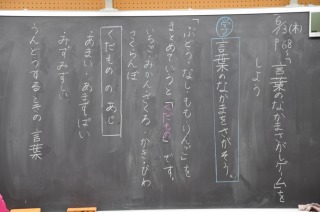 5/13(木)
P68~
言葉のなかまさがしゲームを
しよう
言葉のなかまをさがそう。
「ぶどう・なし・もも・りんご」を
まとめていうと「くだもの」です。
いちご・みかん・ざくろ・かき・びわ
さくらんぼ
くだもの の あじ
あまい・あますっぱい
みずみずしい
うんどうするときの 言葉